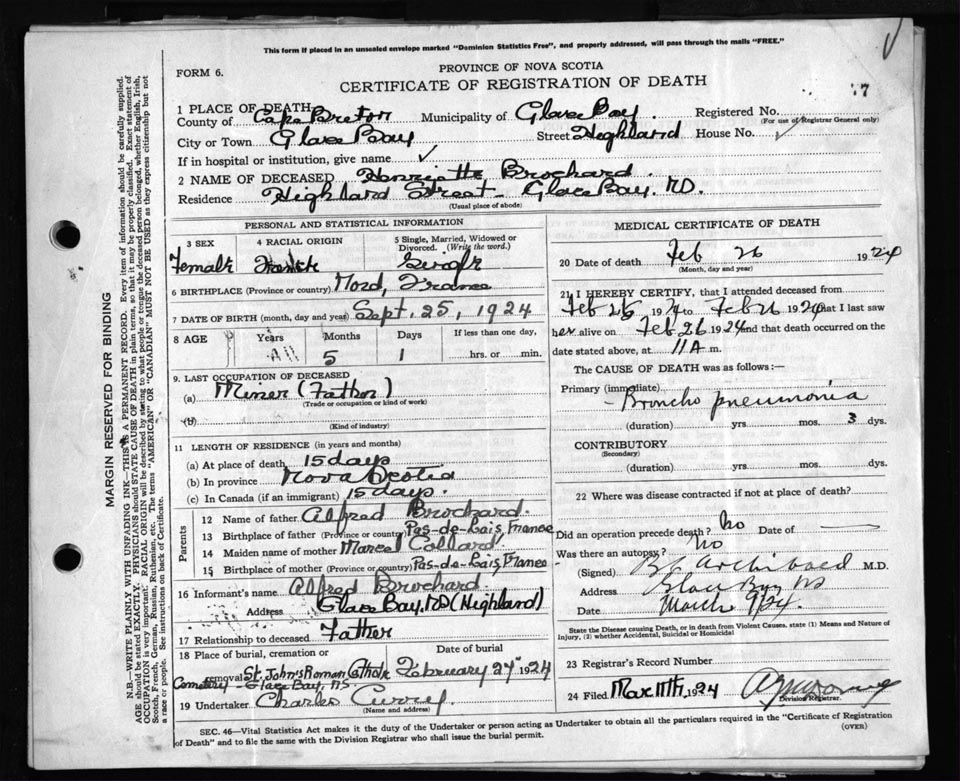 This form if placed in an unsealed envelope marked "Dominion Statistics Free", and properly addressed, will pass through the mails "FREE."
FORM 6.
PROVINCE OF NOVA SCOTIA
CERTIFICATE OF REGISTRATION OF DEATH
7
1 PLACE OF DEATH
County of Cape Breton Municipality of Glace Bay. Registered No.
(For use of Registrar General only)
City or Town Glace Bay Street Highland House No. ✓
If in hospital or institution, give name ✓
2 NAME OF DECEASED Henriette Brochard.
Residence Highland Street - Glace Bay, NS.
(Usual place of abode)
PERSONAL AND STATISTICAL INFORMATION
3 SEX 4 RACIAL ORIGIN 5 Single, Married, Widowed or Divorced. (Write the word.)
Female French Single
6 BIRTHPLACE (Province or country) Nord, France
7 DATE OF BIRTH (month, day and year) Sept. 25, 1924
8 AGE Years Months Days If less than one day,
5 1 hrs. or min.
9. LAST OCCUPATION OF DECEASED
(a) Miner (Father)
(Trade or occupation or kind of work)
(b)
(Kind of industry)
11 LENGTH OF RESIDENCE (in years and months)
(a) At place of death 15 days
(b) In province Nova Scotia
(c) In Canada (if an immigrant) 15 days.
Parents
12 Name of father Alfred Brochard.
13 Birthplace of father (Province or country) Pas-de-Lais, France
14 Maiden name of mother Marcel Collard.
15 Birthplace of mother (Province or country) Pas-de-Lais, France
16 Informant's name Alfred Brochard.
Address Glace Bay, NS (Highland)
17 Relationship to deceased Father
18 Place of burial, cremation or removal Date of burial
St. John's Roman Catholic February 27 1924
Cemetery - Glace Bay, N.S.
19 Undertaker Charles Curry.
(Name and address)
MEDICAL CERTIFICATE OF DEATH
20 Date of death Feb 26 1924
(Month, day and year)
21 I HEREBY CERTIFY, that I attended deceased from
Feb 26 1924 to Feb 26 1924 that I last saw
her alive on Feb 26 1924 and that death occurred on the
date stated above, at 11 A m.
The CAUSE OF DEATH was as follows:—
Primary (immediate)
- Broncho pneumonia
(duration) yrs. mos. 3 dys.
CONTRIBUTORY
(Secondary)
(duration) yrs. mos. dys.
22 Where was disease contracted if not at place of death?
Did an operation precede death? No Date of —
Was there an autopsy? No
(Signed) Archibald M.D.
Address Glace Bay NS
Date March 9/24.
State the Disease causing Death, or in death from Violent Causes, state (1) Means and Nature of Injury, (2) whether Accidental, Suicidal or Homicidal
23 Registrar's Record Number
24 Filed Mar 11th 1924
Division Registrar.
SEC. 46—Vital Statistics Act makes it the duty of the Undertaker or person acting as Undertaker to obtain all the particulars required in the "Certificate of Registration of Death" and to file the same with the Division Registrar who shall issue the burial permit.
(OVER)
MARGIN RESERVED FOR BINDING
N.B.—WRITE PLAINLY WITH UNFADING INK—THIS IS A PERMANENT RECORD. Every item of information should be carefully supplied.
AGE should be stated EXACTLY. PHYSICIANS should STATE CAUSE OF DEATH in plain terms, so that it may be properly classified. Exact statement of
OCCUPATION is very important. RACIAL ORIGIN will be described by stating to what people or tongue the deceased person belonged, whether English, Irish,
Scotch, French, German, Russian, Ruthenian, etc. The terms "AMERICAN" or "CANADIAN" MUST NOT BE USED as they express citizenship but not
a race or people. See instructions on back of Certificate.